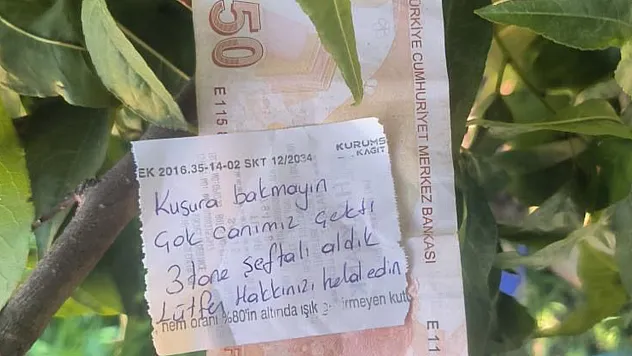 50
E 115
TÜRKİYE CUMHURİYET MERKEZ BANKASI
E 11
EK 2016.35-14-02 SKT 12/2034
KURUMS
KAĞIT
Kusura bakmayın
Çok canımız çekti
3 tane şeftali aldık
Lütfen Hakkınızı helal edin
nem oranı %80'in altında ışık girmeyen kutu